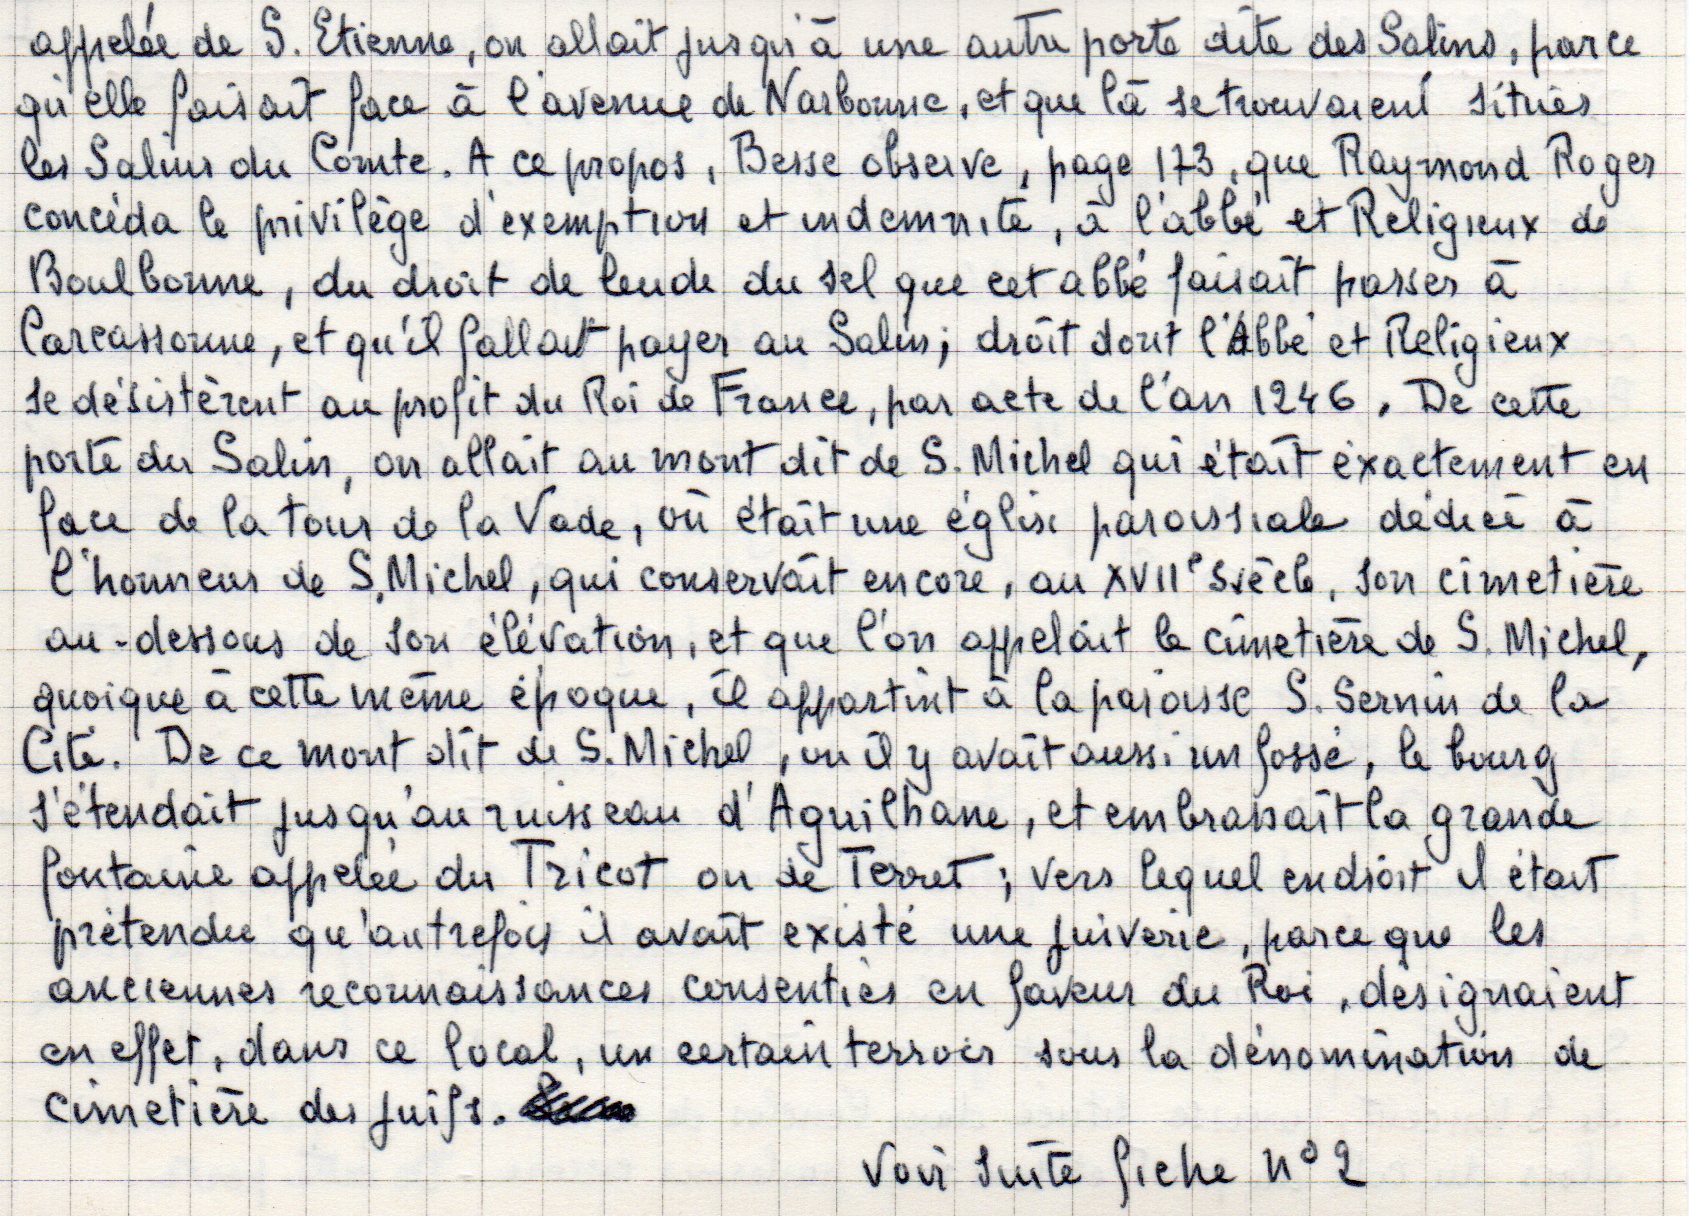 appelée de S. Etienne, on allait jusqu'à une autre porte dite des Salins, parce
qu'elle faisait face à l'avenue de Narbonne, et que là se trouvaient situés
les Salins du Comte. A ce propos, Besse observe, page 173, que Raymond Roger
concéda le privilège d'exemption et indemnité, à l'abbé et Religieux de
Boulbonne, du droit de leude du sel que cet abbé faisait passer à
Carcassonne, et qu'il fallait payer au Salin; droit dont l'Abbé et Religieux
se désistèrent au profit du Roi de France, par acte de l'an 1246. De cette
porte du Salin, on allait au mont dit de S. Michel qui était éxactement en
face de la tour de la Vade, où était une église paroissiale dédiée à
l'honneur de S. Michel, qui conservait encore, au XVIIe siècle, son cimetière
au-dessous de son élévation, et que l'on appelait le cimetière de S. Michel,
quoique à cette même époque, il appartint à la paroisse S. Sernin de la
Cité. De ce mont dit de S. Michel, ou il y avait aussi un fossé, le bourg
s'étendait jusqu'au ruisseau d'Aguilhane, et embrassait la grande
fontaine appelée du Tricot ou de Terret; vers lequel endroit il était
prétendu qu'autrefois il avait existé une juiverie, parce que les
anciennes reconnaissances consenties en faveur du Roi, désignaient
en effet, dans ce local, un certain terroir sous la dénomination de
cimetière des juifs.
Voir suite fiche n° 2